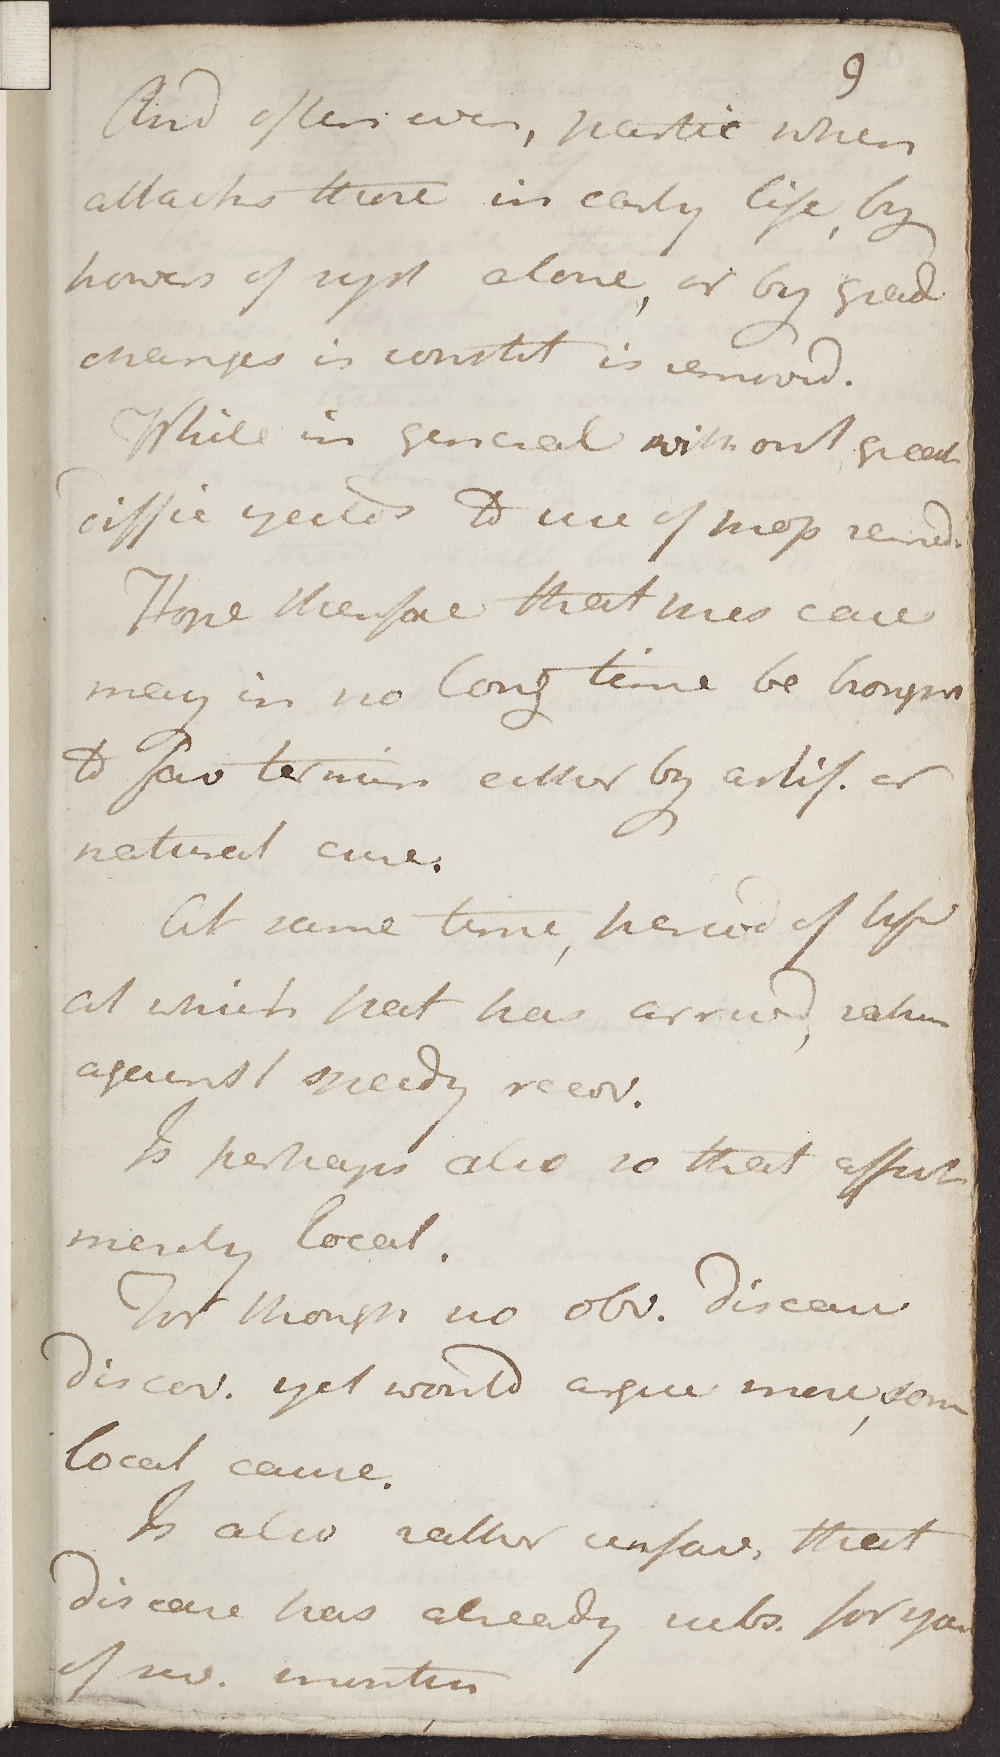 9
And often even, partic when
attacks those in early life, by
powers of syst alone, or by grad
changes in constit is removd.
While in general without great
diffic yeilds to use of prop remed.
Hope therefore that this case
may in no long time be brought
to fav termin either by artif. or
natural cure.
At same time, period of life
at which pat has arrived, rather
against speedy recov.
Is perhaps also so that affect
merely local.
For though no obv. disease
discov. yet would argue mere, some
local cause.
Is also rather unfav, that
disease has already subs. for
of sev. months